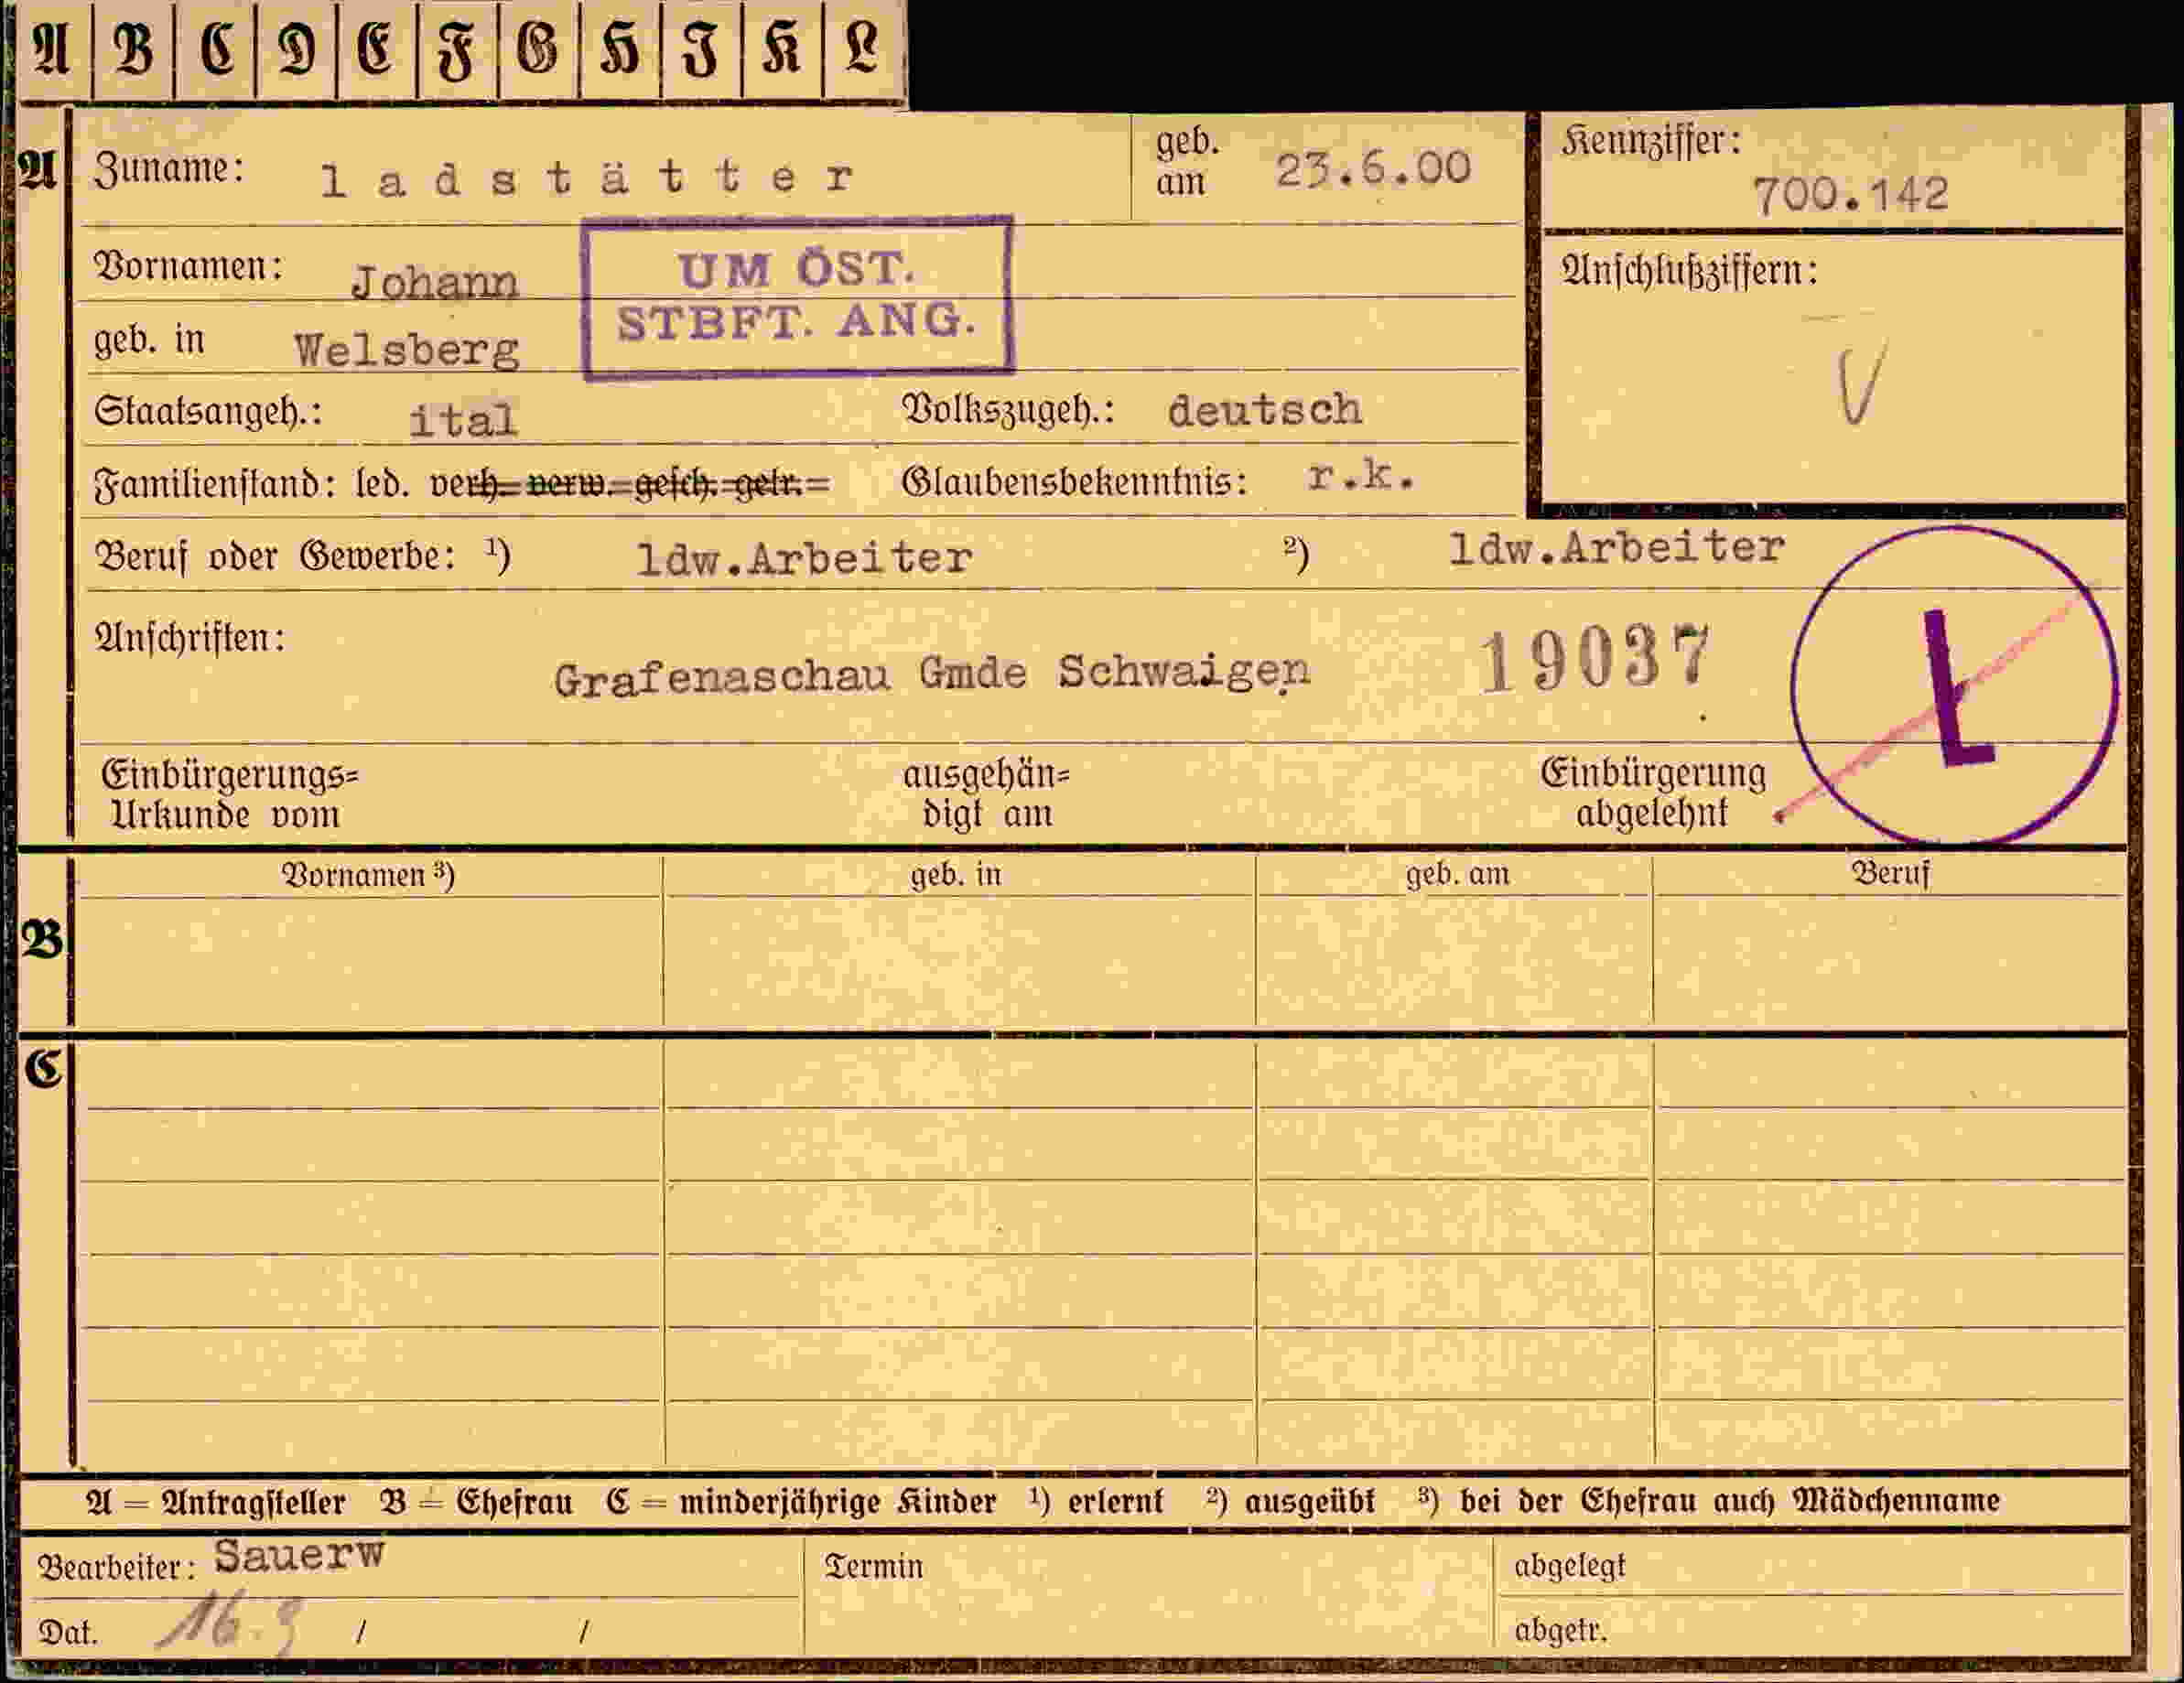 A B C D E F G H I K L
A Zuname: ladstätter geb. am 23.6.00 Kennziffer: 700.142
Vornamen: Johann
UM ÖST.
STBFT. ANG.
Anschlußziffern:
V
geb. in Welsberg
Staatsangeh.: ital Volkszugeh.: deutsch
Familienstand: led. verh. verw. gesch. getr. Glaubensbekenntnis: r.k.
Beruf oder Gewerbe: ¹) ldw.Arbeiter ²) ldw.Arbeiter
Anschriften: Grafenaschau Gmde Schwaigen 19037
L
Einbürgerungs= ausgehän= Einbürgerung
Urkunde vom digt am abgelehnt
Vornamen ³) geb. in geb. am Beruf
B
C
A = Antragsteller B = Ehefrau C = minderjährige Kinder ¹) erlernt ²) ausgeübt ³) bei der Ehefrau auch Mädchenname
Bearbeiter: Sauerw Termin abgelegt
Dat. 16.9 / / abgetr.